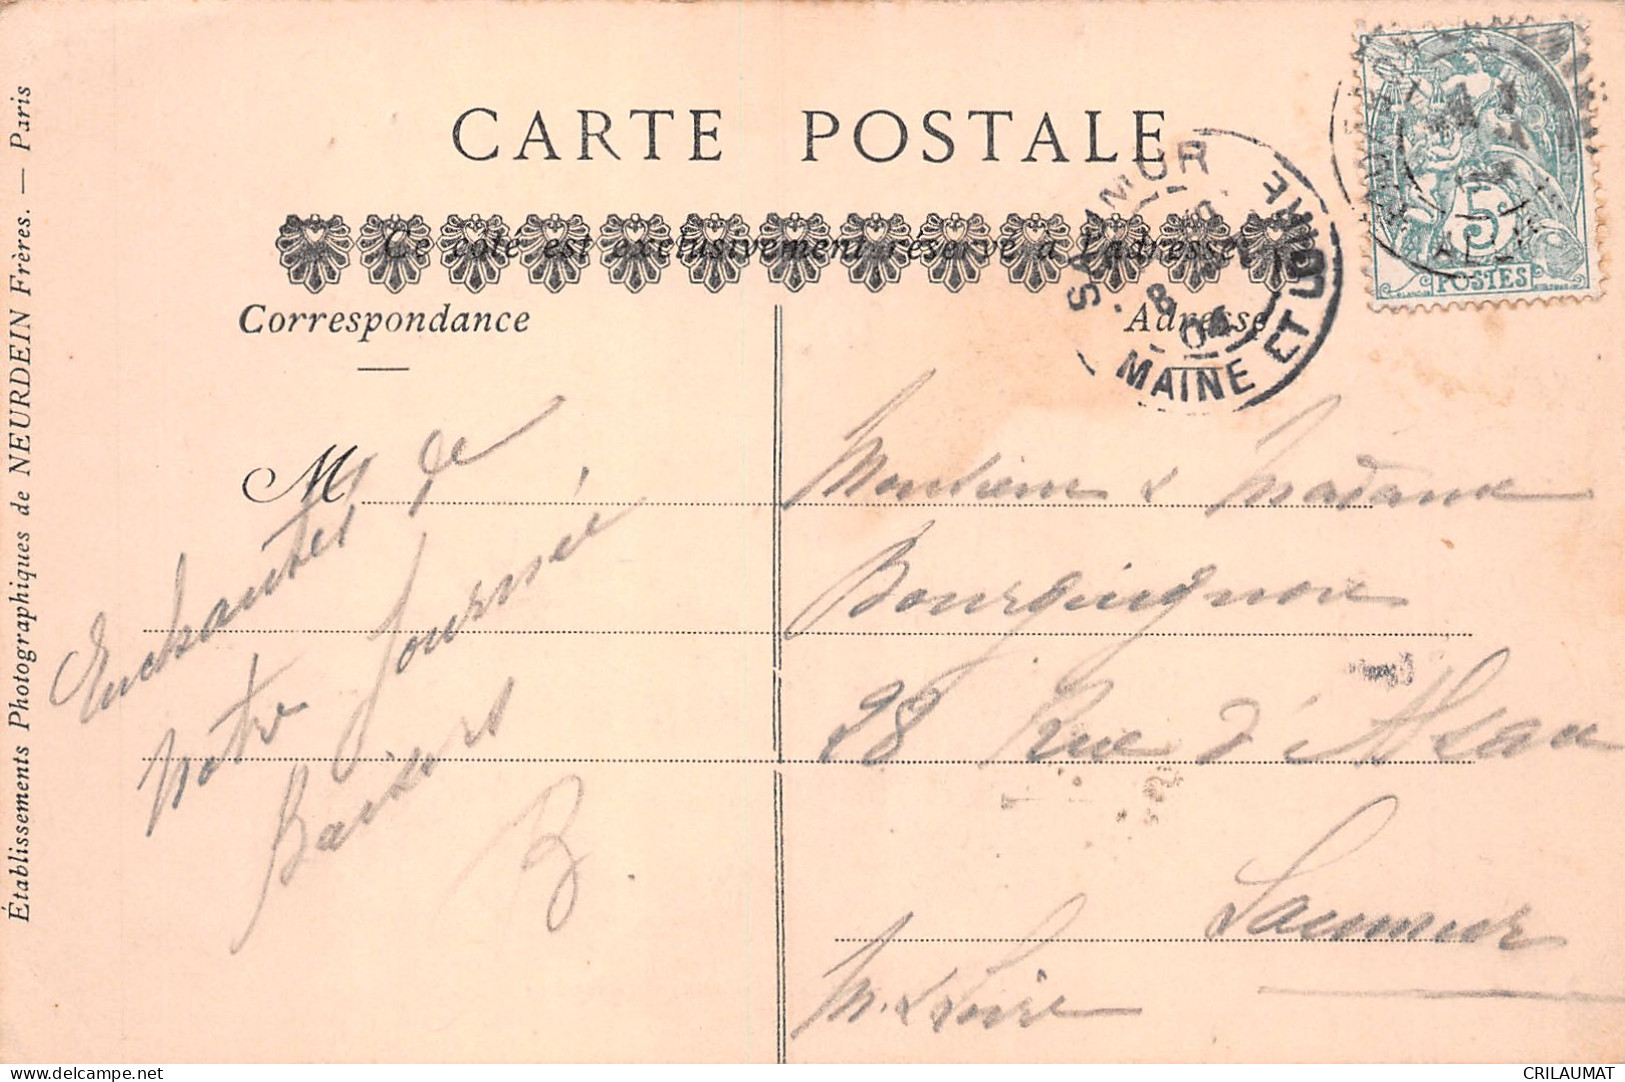 CARTE POSTALE
Ce côté est exclusivement réservé à l'adresse
Correspondance
Adresse
M
Enchantés de
notre journée
Baisers
B.
Monsieur & Madame
Bourguignon
28 Rue d'Alsace
Saumur
M. & Loire
SAUMUR
8
04
MAINE ET LOIRE
5
POSTES
Établissements Photographiques de NEURDEIN Frères. — Paris
delcampe.net
CRILAUMAT